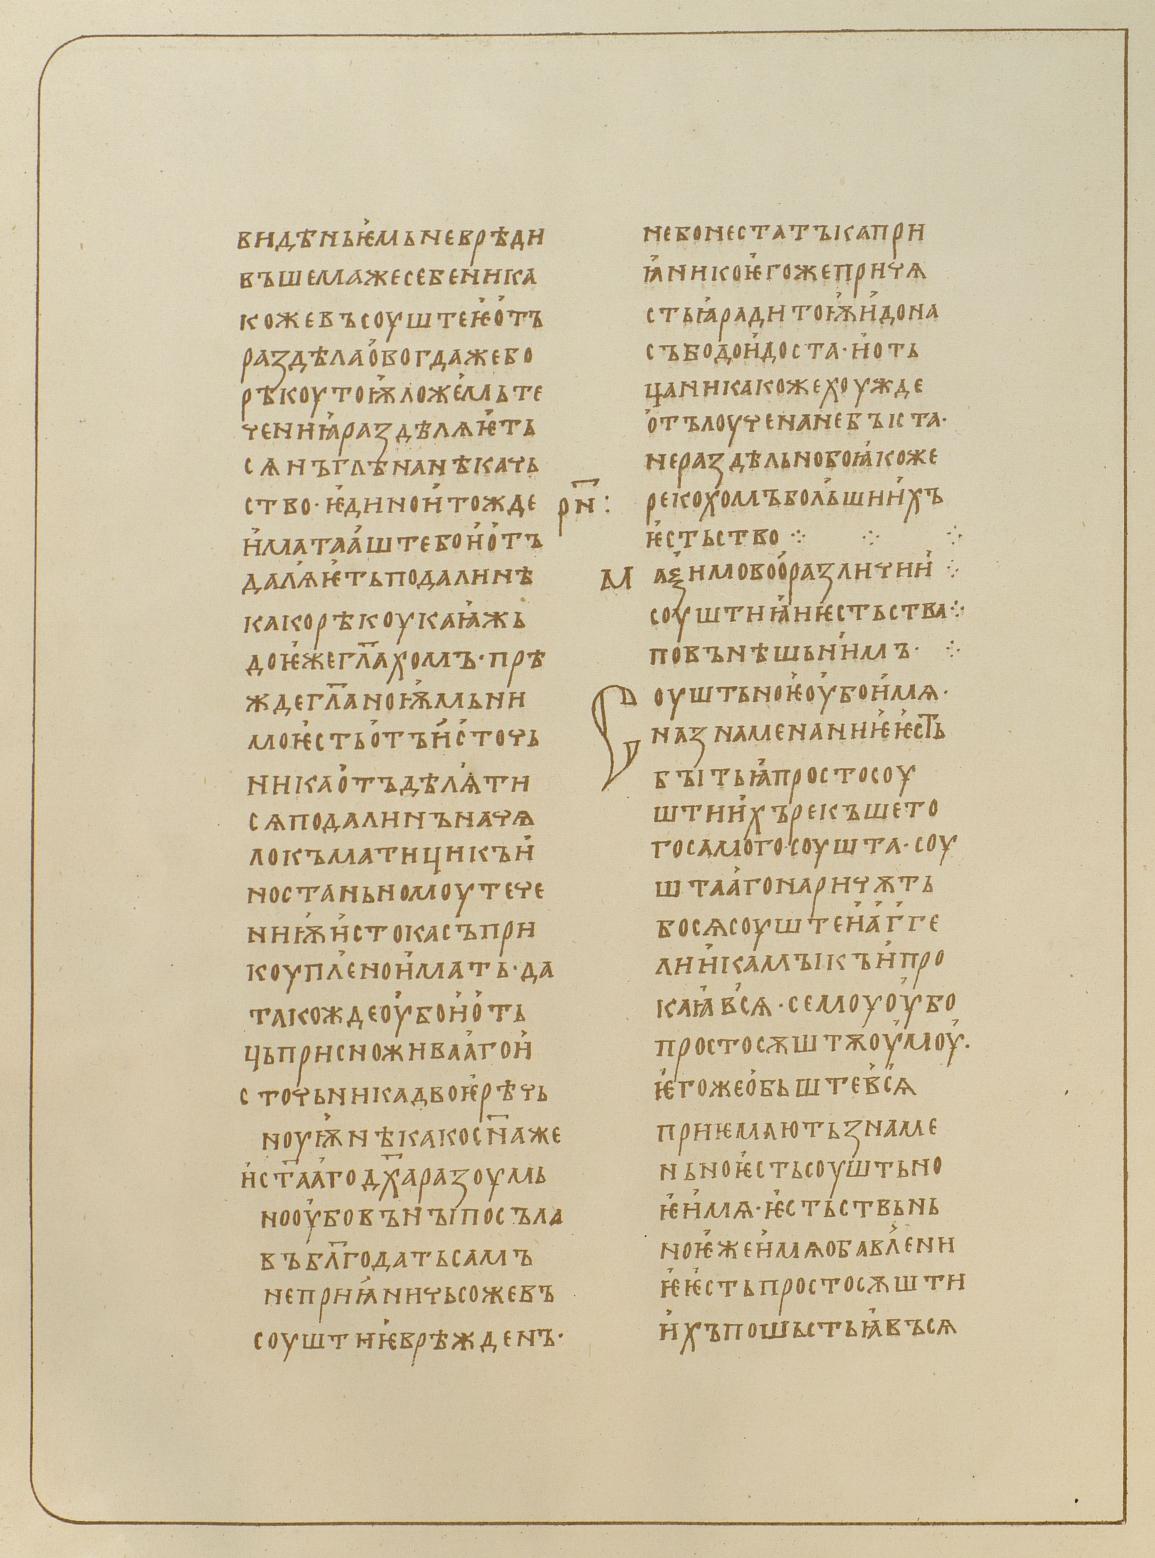 видѣньѥмьневрѣди
въшемажесебеника
кожевъсоуштеѥотъ
раздѣлаовогдажебо
рѣкоутоѭложемьте
чениꙗраздѣлѧѥть
сѧнъглѣнанѣкачь
ство·ѥдиноитожде
иматааштебоиотъ
далѧѥтьподалинѣ
какорѣкоукаꙗжь
доѥжегл҃ахомъ·прѣ
ждегл҃аноѭмьни
моѥстьотъисточь
никаотъдѣлѧти
сѧподалинъначѧ
локъматицикъи
ностаньномоутече
ниѭистокасъпри
коупленоимать·да
такождеоубоиоть
цьприсноживаагои
сточьникадвоѥрѣчь
ноуѭнѣкакосн҃аже
ист҃аагодх҃аразоумь
нооубовънꙑпосъла
въбл҃годатьсамъ
неприꙗничьсожевъ
соуштиѥврѣжденъ·
небонестатъкапри
ꙗникоѥгожепричѧ
стьꙗрадитоѭидона
събодоидоста·иоть
цаникакожехоужде
отълоученанебꙑста·
нераздѣльнобоꙗкоже
рекохомъбольшиихъ
ѥстьство⁘ ⁘ ⁘
рн҃:
маѯимовооразличии⁘
соуштиꙗиѥстьства⁘
повънѣшьниимъ·⁘
Соуштьноѥоубоимѧ·
назнаменаниѥѥсть
бꙑтьꙗпростосоу
штиихърекъшето
госамогосоушта·соу
штаагонаричѫть
босѧсоуштеиагге
лиикамꙑкъипро
каꙗвсѧ·семоуоубо
простосѫштѫоумоу.
ѥгожеобьштевсѧ
приѥмлютьзнаме
ньноѥстьсоуштьно
ѥимѧ·ѥстьствьнь
ноѥжеимѧобавлени
ѥѥстьпростосѫшти
ихъпошьстьꙗвъсѧ